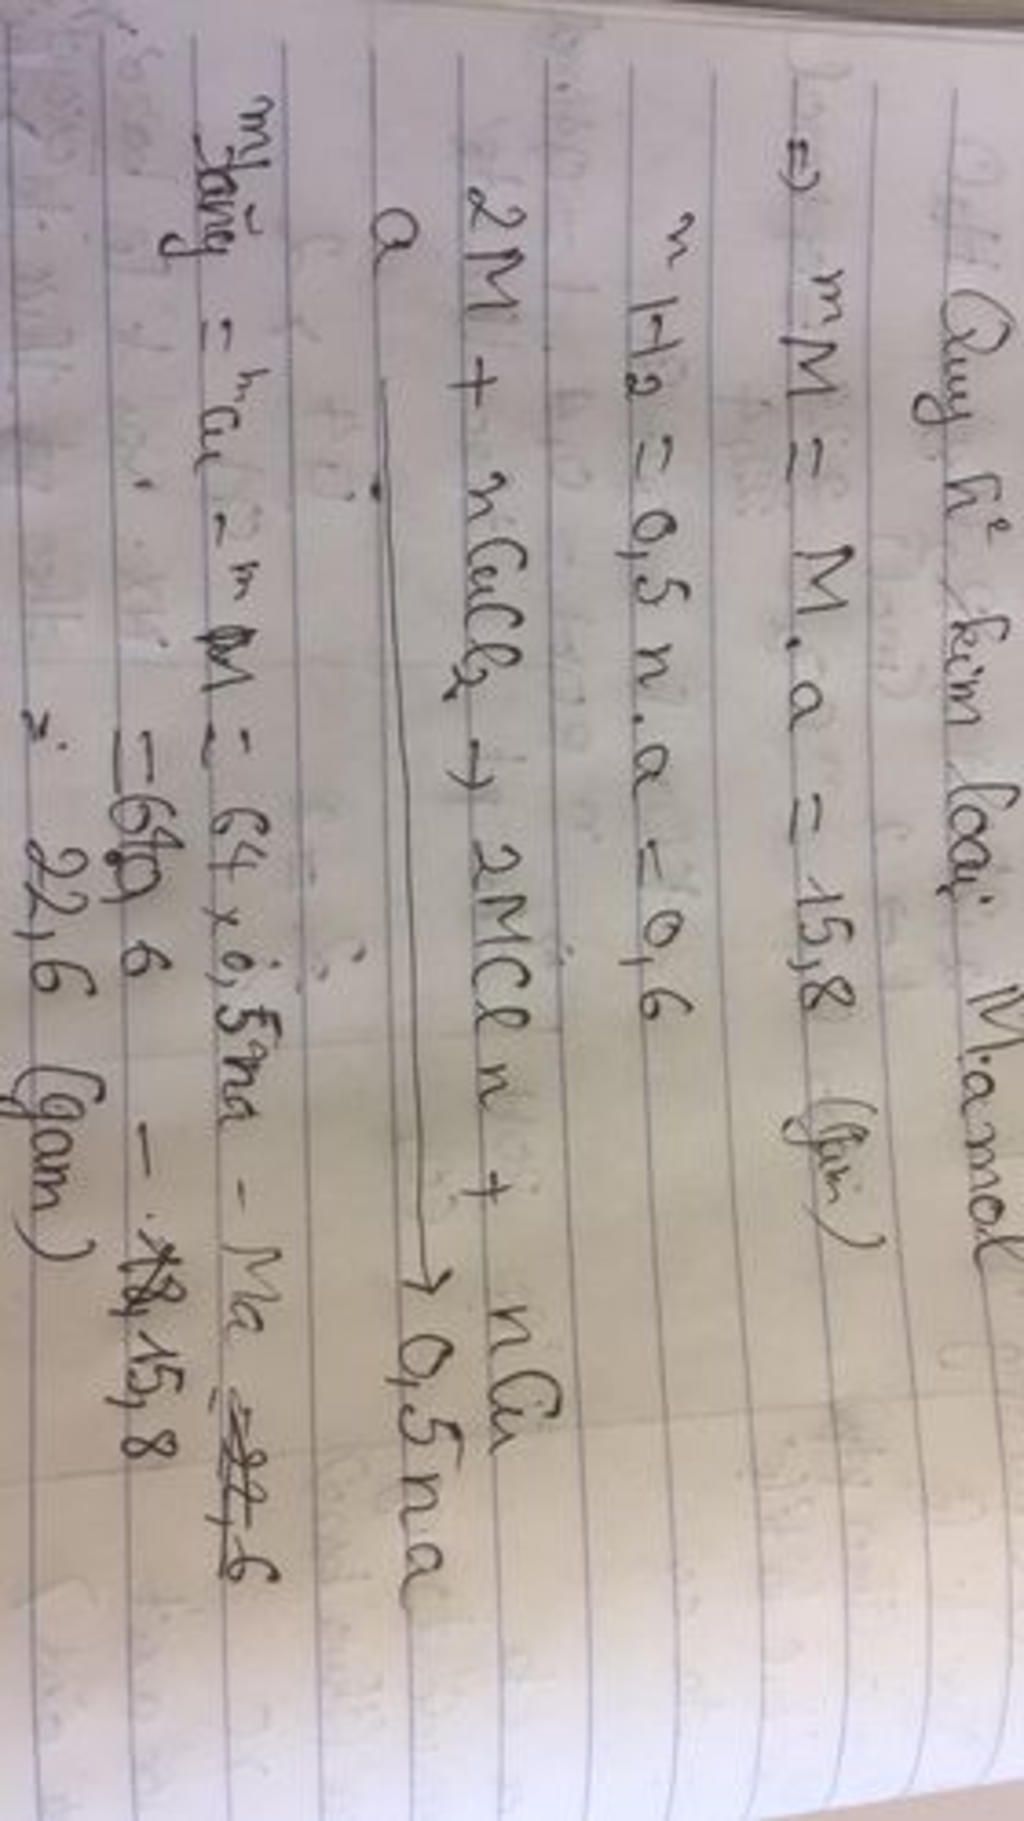 Quy h² kim loại M: amol
=> mM = M.a = 15,8 (gam)
n H2 = 0,5 n.a = 0,6
2M + nCuCl2 → 2MCln + nCu
a → 0,5na
m tăng = mCu - mM = 64 x 0,5na - Ma
= 64.0,6 - 15,8
= 22,6 (gam)